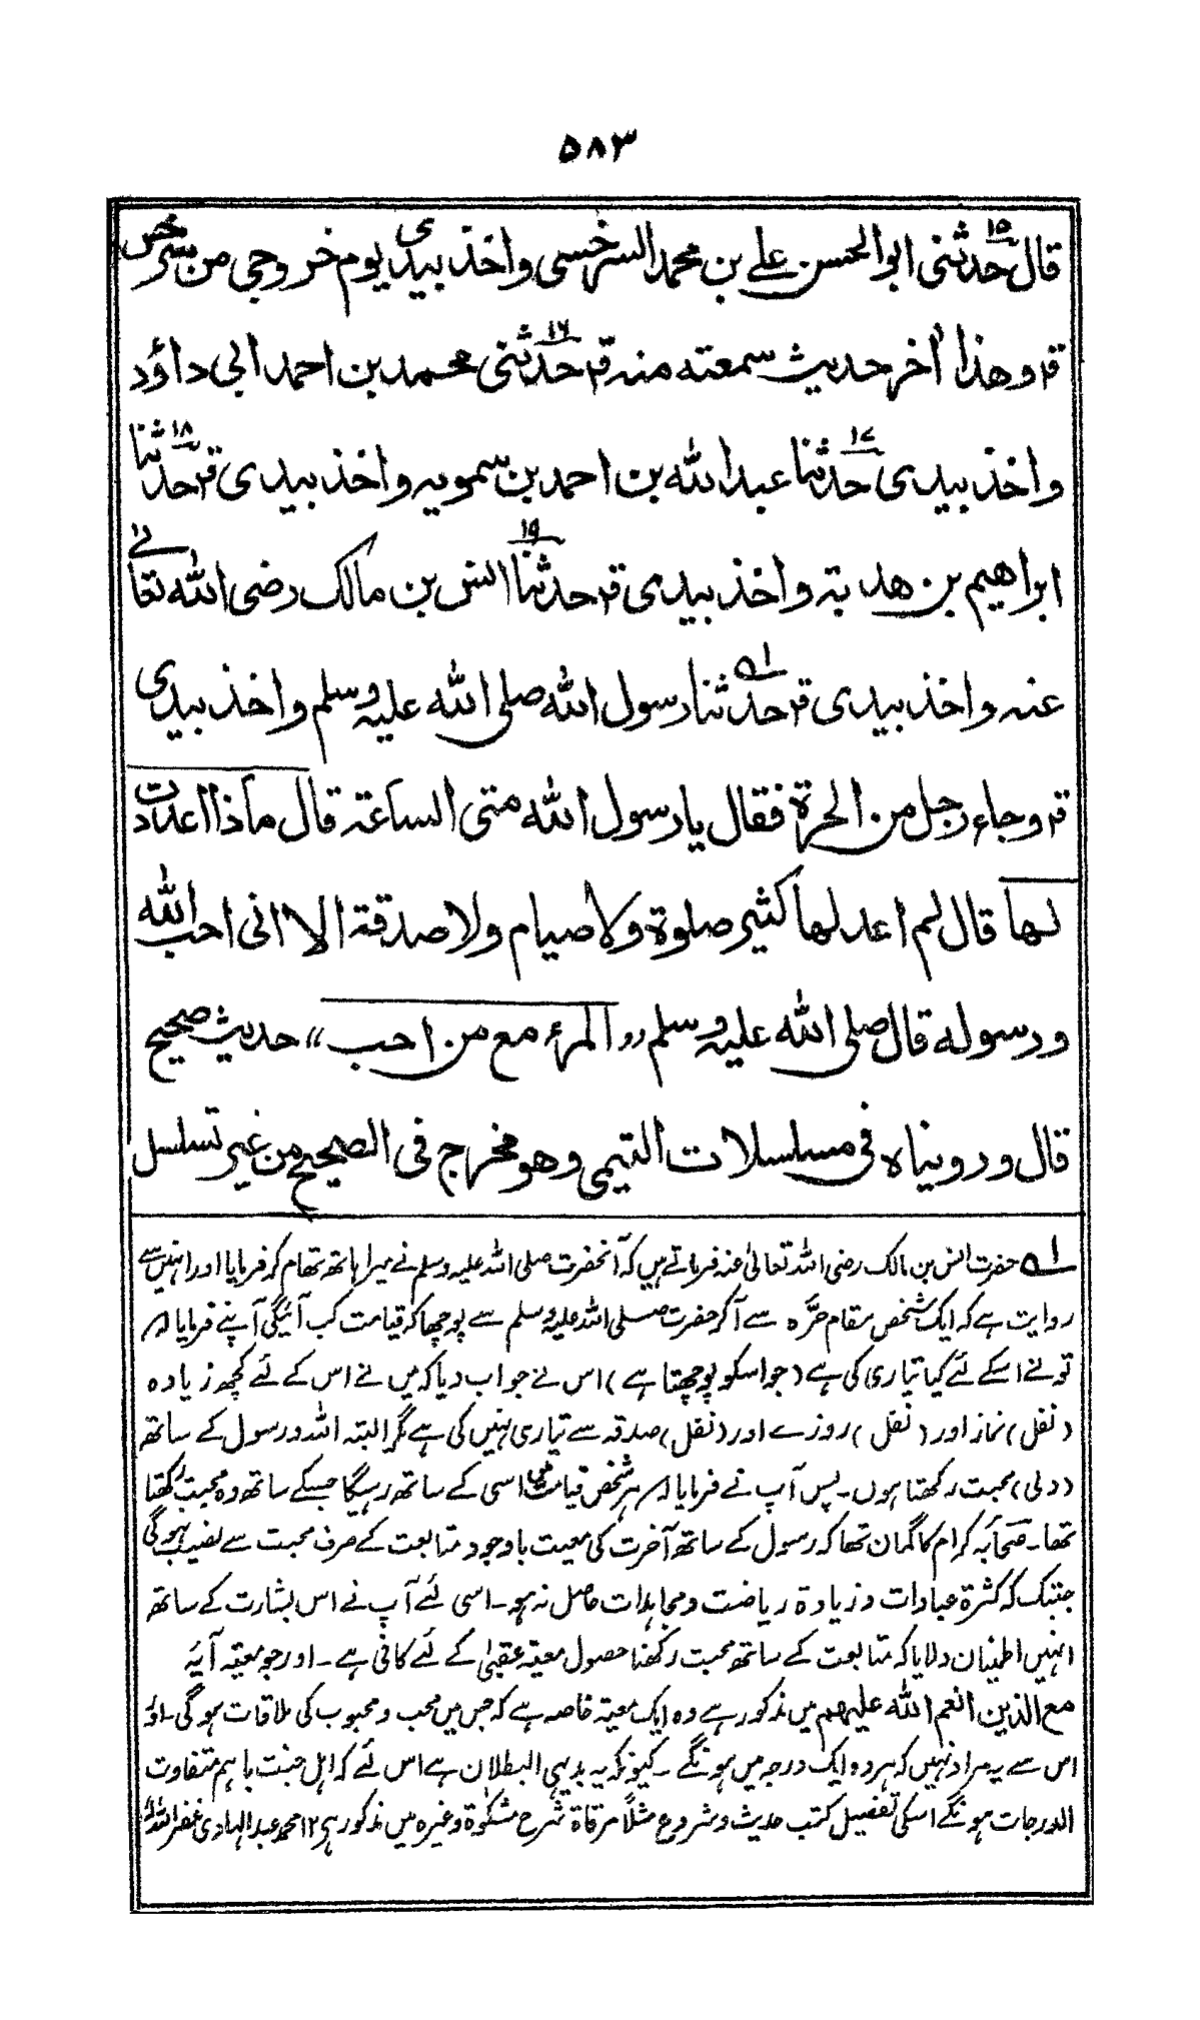 ۵۸۳
قال حدثنی ابوالحسن علی بن محمد السرخسی واخذ بیدی یوم خروجی من سرخس ۱۵
قہ وھذا اٰخر حدیث سمعتہ منہ قہ حدثنی محمد بن احمد ابی داؤد ۱۶
واخذ بیدی حدثنا عبداللہ بن احمد بن سمویہ واخذ بیدی قہ حدثنا ۱۷ ۱۸
ابراھیم بن ھدبتہ واخذ بیدی قہ حدثنا انس بن مالک رضی اللہ تعالٰی ۱۹
عنہ واخذ بیدی قہ حدثنا رسول اللہ صلی اللہ علیہ وسلم واخذ بیدی ۵۱
قہ وجاء رجل من الحرة فقال یا رسول اللہ متی الساعتہ قال ماذا اعددت
لہا قال لم اعد لہا کثیر صلوة ولا صیام ولا صدقة الا انی احب اللہ
ورسولہ قال صلی اللہ علیہ وسلم ,,المرء مع من احب،، حدیث صحیح
قال وروینا ہ فی مسلسلات التیمی وھو مخرج فی الصحیح من غیر تسلسل
۵۱ حضرت انس بن مالک رضی اللہ تعالٰی عنہ فرماتے ہیں کہ آنحضرت صلی اللہ علیہ وسلم نے میرا ہاتھ تھام کر فرمایا اور انہیں سے
روایت ہے کہ ایک شخص مقام حرّہ سے آکر حضرت صلی اللہ علیہ وسلم سے پوچھا کہ قیامت کب آئیگی آپنے فرمایا کہ
تونے اسکے لئے کیا تیاری کی ہے (جو اسکو پوچھتا ہے) اس نے جواب دیا کہ میں نے اس کے لئے کچھ زیادہ
(نفل) نماز اور (نفل) روزے اور (نفل) صدقہ سے تیاری نہیں کی ہے مگر البتہ اللہ ورسول کے ساتھ
(دلی) محبت رکھتا ہوں۔ پس آپ نے فرمایا کہ ہر شخص قیامت میں اسی کے ساتھ رہیگا جسکے ساتھ وہ محبت رکھتا
تھا۔ صحابۂ کرام کا گمان تھا کہ رسول کے ساتھ آخرت کی معیت باوجود متابعت کے صرف محبت سے نصیب نہوگی
جبتک کہ کثرة عبادات وزیادة ریاضت ومجاہدات حاصل نہ ہو۔ اسی لئے آپ نے اس بشارت کے ساتھ
انہیں اطمینان دلایا کہ متابعت کے ساتھ محبت رکھنا حصول معیۃ عقبیٰ کے لئے کافی ہے۔ اور جو معیۃ آیۂ
مع الذین انعم اللہ علیہم میں مذکور ہے وہ ایک معیۃ خاصہ ہے کہ جس میں محب ومحبوب کی ملاقات ہوگی۔ اور
اس سے یہ مراد نہیں کہ ہر دو ایک درجہ میں ہونگے۔ کیونکہ یہ بدیہی البطلان ہے اس لئے کہ اہل جنت باہم متفاوت
الدرجات ہونگے اسکی تفصیل کتب حدیث وشروع مثلاً مرقاة شرح مشکوٰة وغیرہ میں مذکور ہے ۱۲ محمد عبدالہادی غفراللہ لہ